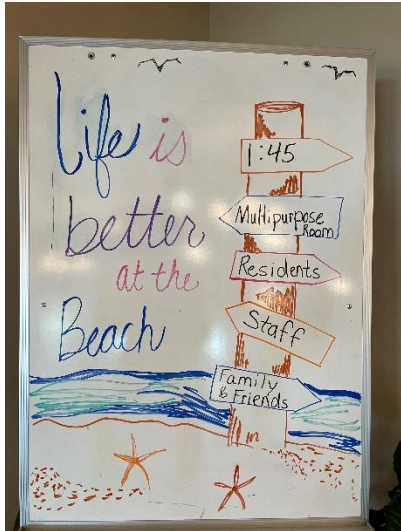 Life is
better
at the
Beach
1:45
Multipurpose
Room
Residents
Staff
Family
& Friends